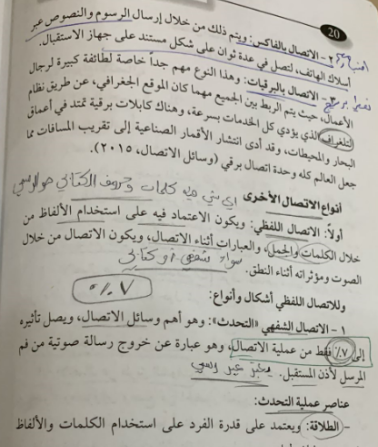 20
٢ - الاتصال بالفاكس: ويتم ذلك من خلال إرسال الرسوم والنصوص عبر
أسلاك الهاتف، لتصل في عدة ثوان على شكل مستند على جهاز الاستقبال.
٣ - الاتصال بالبرقيات: وهذا النوع مهم جداً خاصة لطائفة كبيرة لرجال
الأعمال، حيث يتم الربط بين الجميع مهما كان الموقع الجغرافي، عن طريق نظام
التلغراف الذي يؤدي كل الخدمات بسرعة، وهناك كابلات برقية تمتد في أعماق
البحار والمحيطات، وقد أدى انتشار الأقمار الصناعية إلى تقريب المسافات مما
جعل العالم كله وحدة اتصال برقي (وسائل الاتصال، ٢٠١٥).
اي شي فيه كلمات وحروف الكتابي هو الرسمي
أنواع الاتصال الأخرى
أولاً: الاتصال اللفظي: ويكون الاعتماد فيه على استخدام الألفاظ من
خلال الكلمات والجمل، والعبارات أثناء الاتصال، ويكون الاتصال من خلال
الصوت ومؤثراته أثناء النطق. سواء شفهي او كتابي
٧٪
وللاتصال اللفظي أشكال وأنواع:
١ - الاتصال الشفهي «التحدث»: وهو أهم وسائل الاتصال، ويصل تأثيره
إلى ٧٪ فقط من عملية الاتصال، وهو عبارة عن خروج رسالة صوتية من فم
المرسل لأذن المستقبل. يعتبر غير رسمي
عناصر عملية التحدث:
- الطلاقة: ويعتمد على قدرة الفرد على استخدام الكلمات والألفاظ